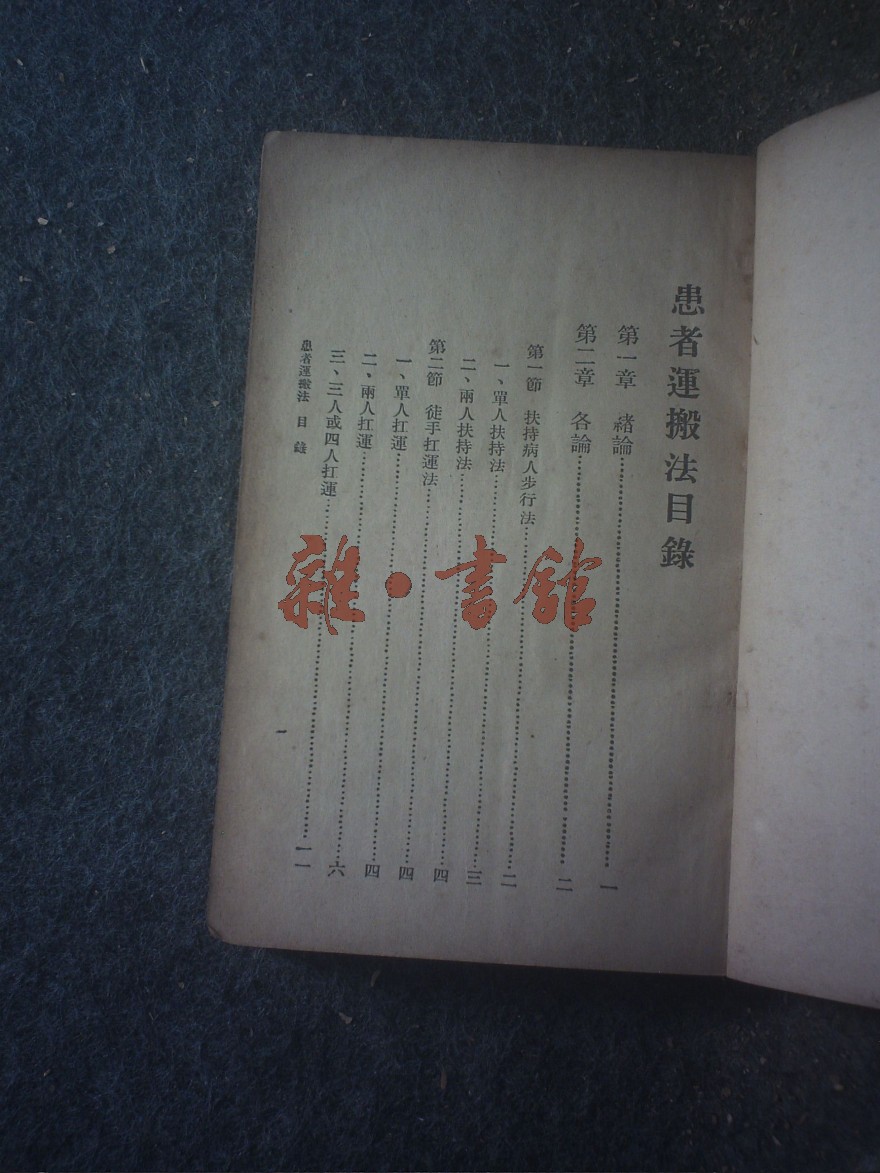 患者運搬法目錄
第一章 緒論……一
第二章 各論……二
第一節 扶持病人步行法……二
一、單人扶持法……三
二、兩人扶持法……四
第二節 徒手扛運法……四
一、單人扛運……四
二、兩人扛運……六
三、三人或四人扛運……一一
患者運搬法 目錄 一
雜·書館